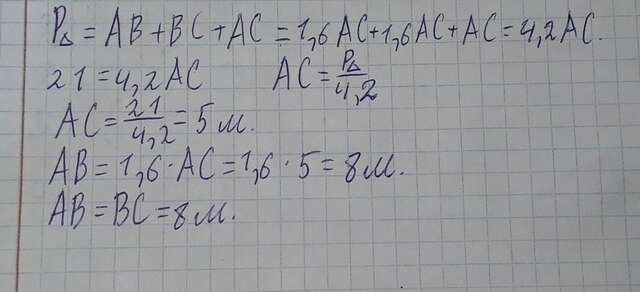 P△ = AB+BC+AC = 1,6AC+1,6AC+AC = 4,2AC.
21 = 4,2AC AC = P△/4,2
AC = 21/4,2 = 5 м.
AB = 1,6·AC = 1,6·5 = 8 м.
AB = BC = 8 м.